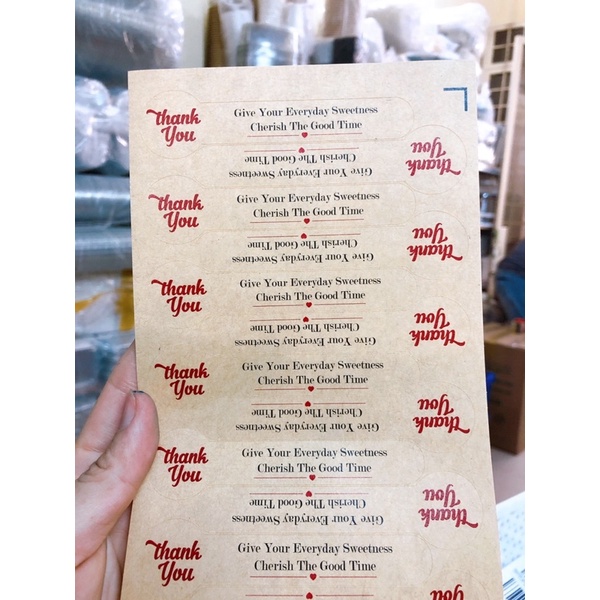 thank
You
Give Your Everyday Sweetness
Cherish The Good Time
thank
You
Give Your Everyday Sweetness
Cherish The Good Time
thank
You
Give Your Everyday Sweetness
Cherish The Good Time
thank
You
Give Your Everyday Sweetness
Cherish The Good Time
thank
You
Give Your Everyday Sweetness
Cherish The Good Time
thank
You
Give Your Everyday Sweetness
Cherish The Good Time
thank
You
Give Your Everyday Sweetness
Cherish The Good Time
thank
You
Give Your Everyday Sweetness
Cherish The Good Time
thank
You
Give Your Everyday Sweetness
Cherish The Good Time
thank
You
Give Your Everyday Sweetness
Cherish The Good Time
thank
You
Give Your Everyday Sweetness
Cherish The Good Time
You